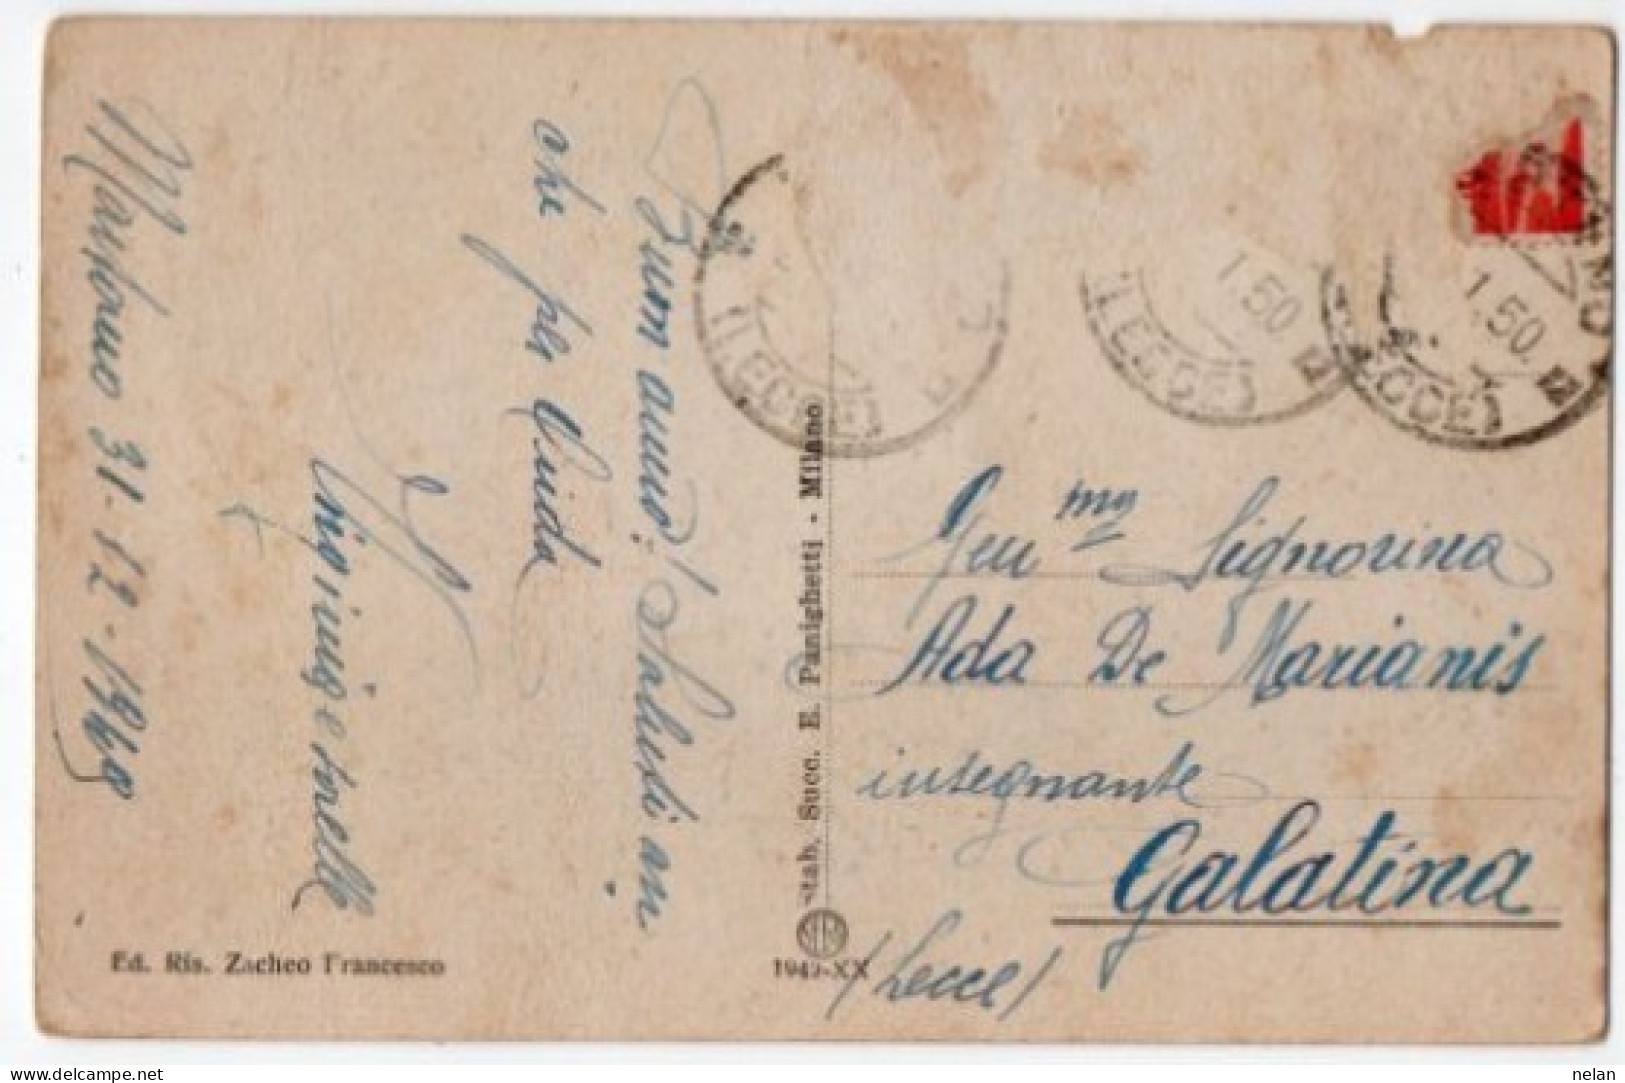 31-12-1949
Buon anno! Saluti an
che per Guida
Ed. Ris. Zacheo Francesco
Stab. Succ. E. Panighetti - Milano
1942-XX
(LECCE)
1.50.
(LECCE)
1.50.
(LECCE)
Gen ma Signorina
Ada De Marianis
insegnante
Galatina
(Lecce)
nelan
https://www.delcampe.net